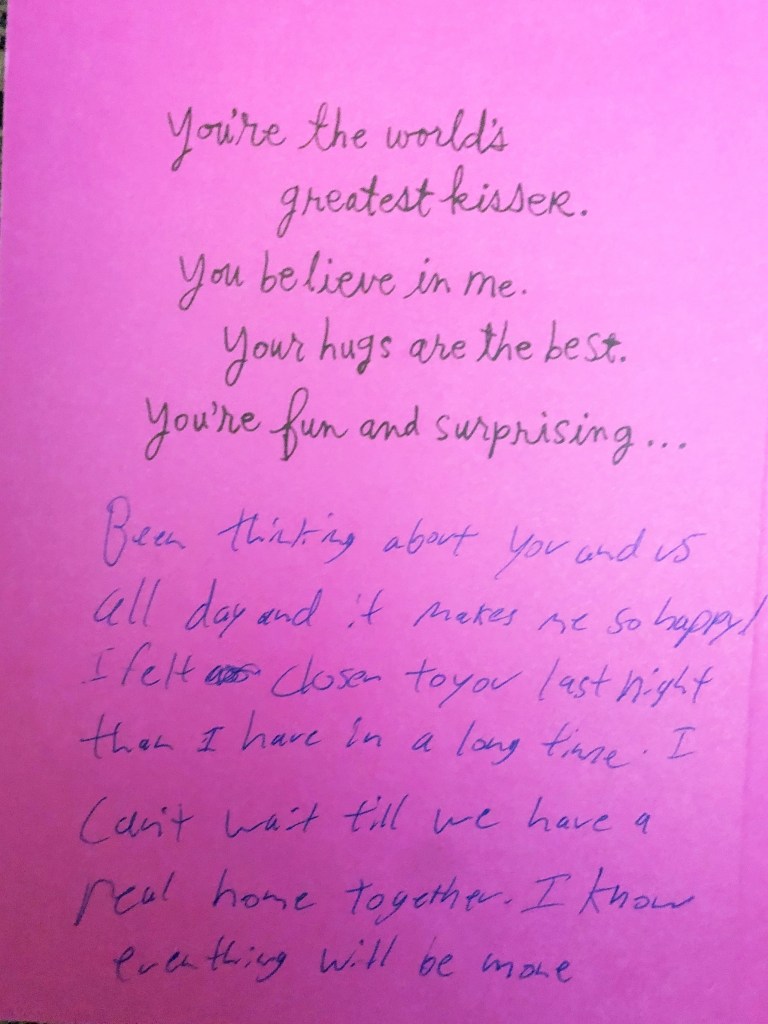 You're the world's
greatest kisser.
You believe in me.
Your hugs are the best.
You're fun and surprising...
Been thinking about you and us
all day and it makes me so happy!
I felt closer to you last night
than I have in a long time. I
can't wait till we have a
real home together. I know
everything will be more